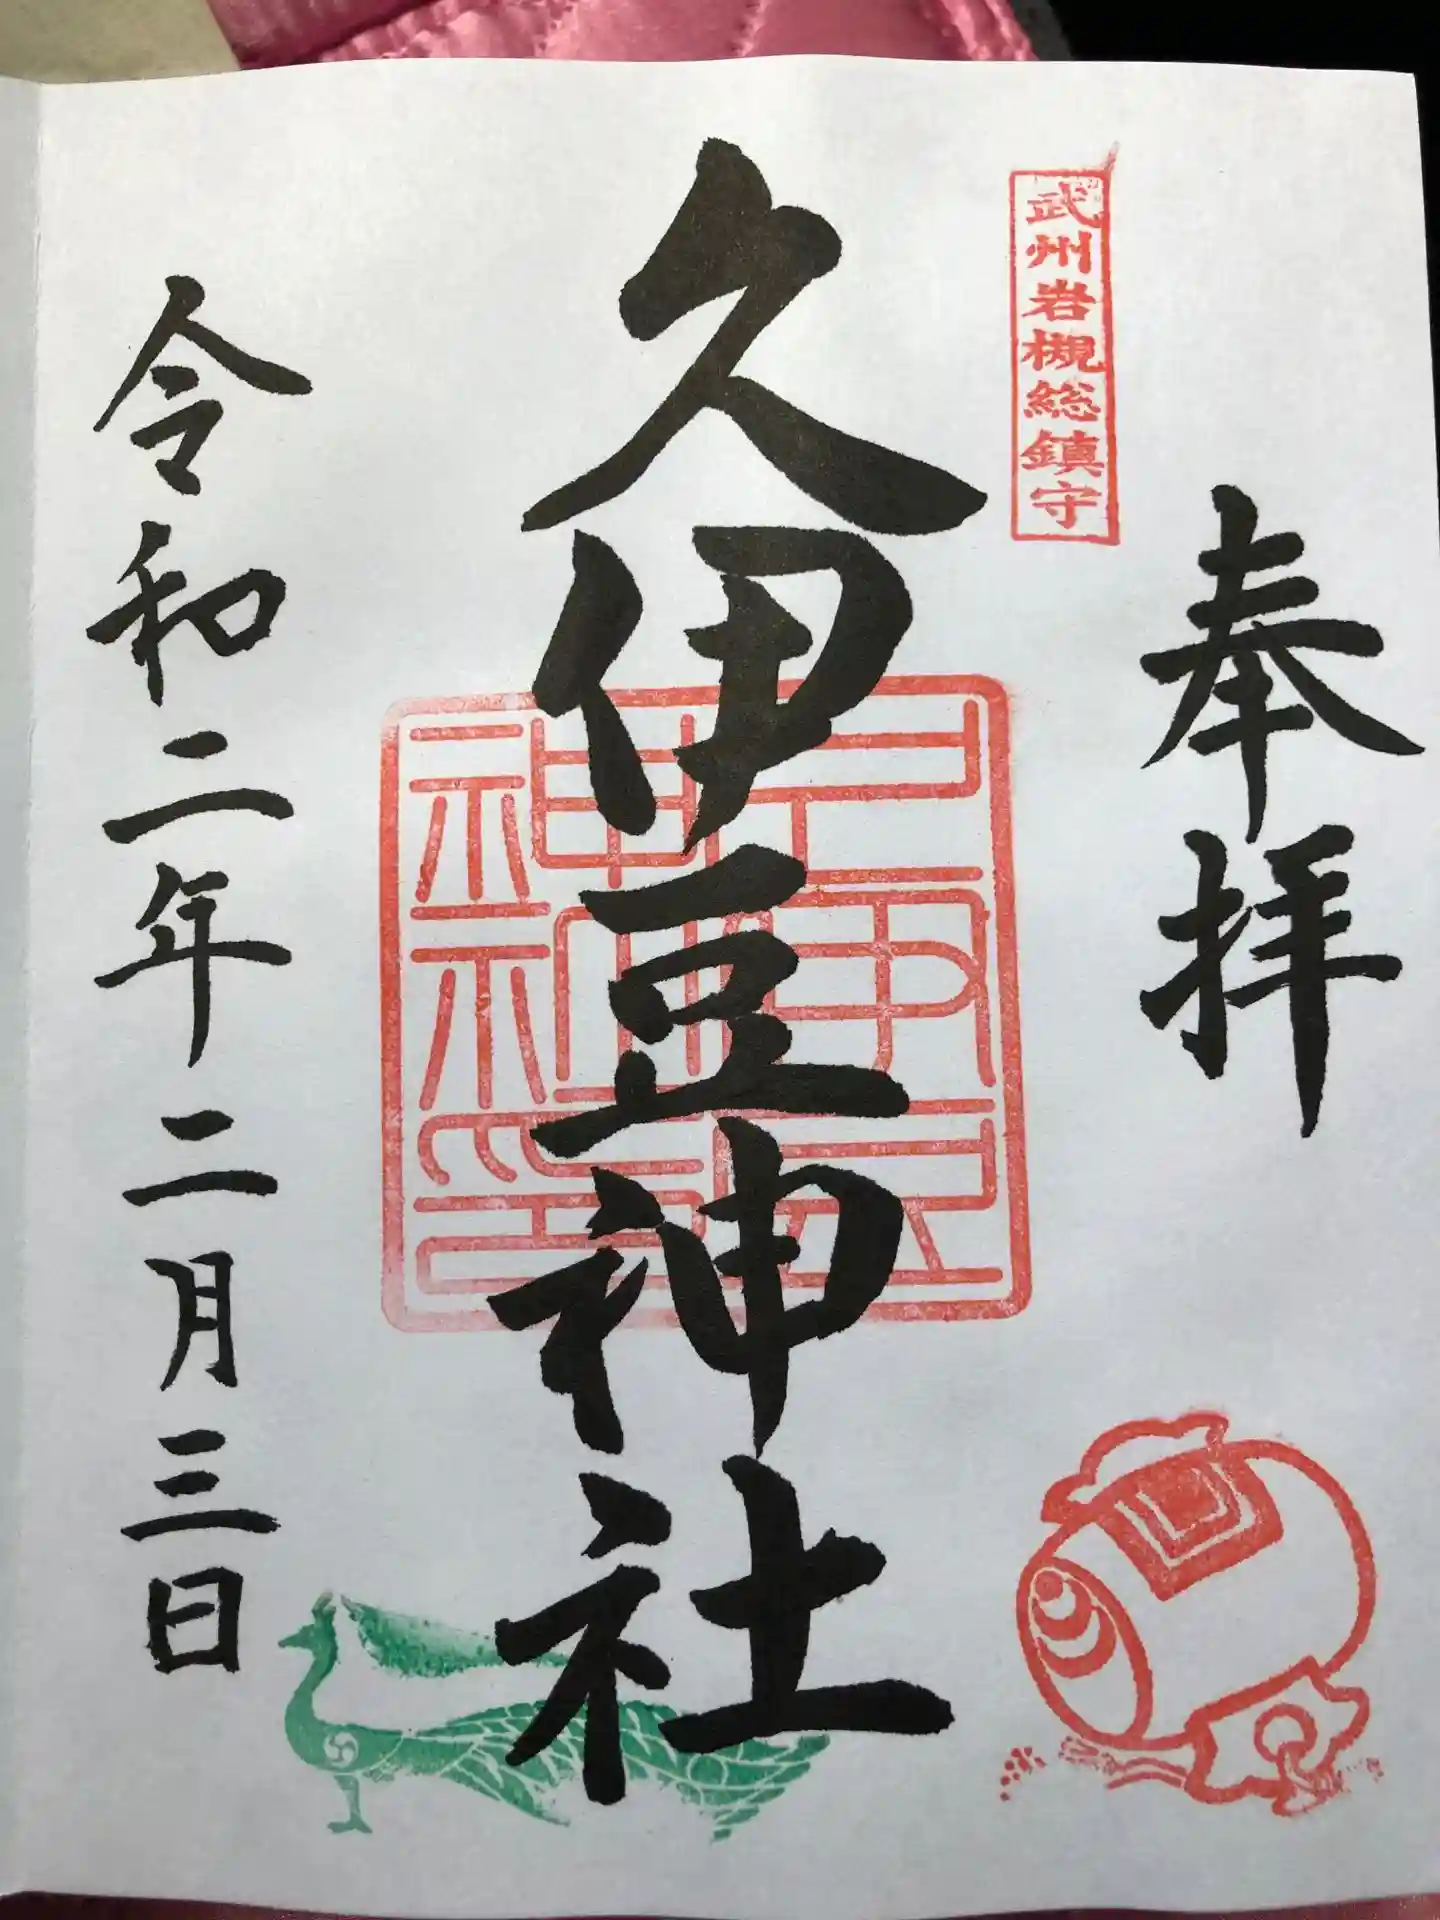 奉拝
武州岩槻総鎮守
久伊豆神社
久伊豆神社印
令和二年二月三日